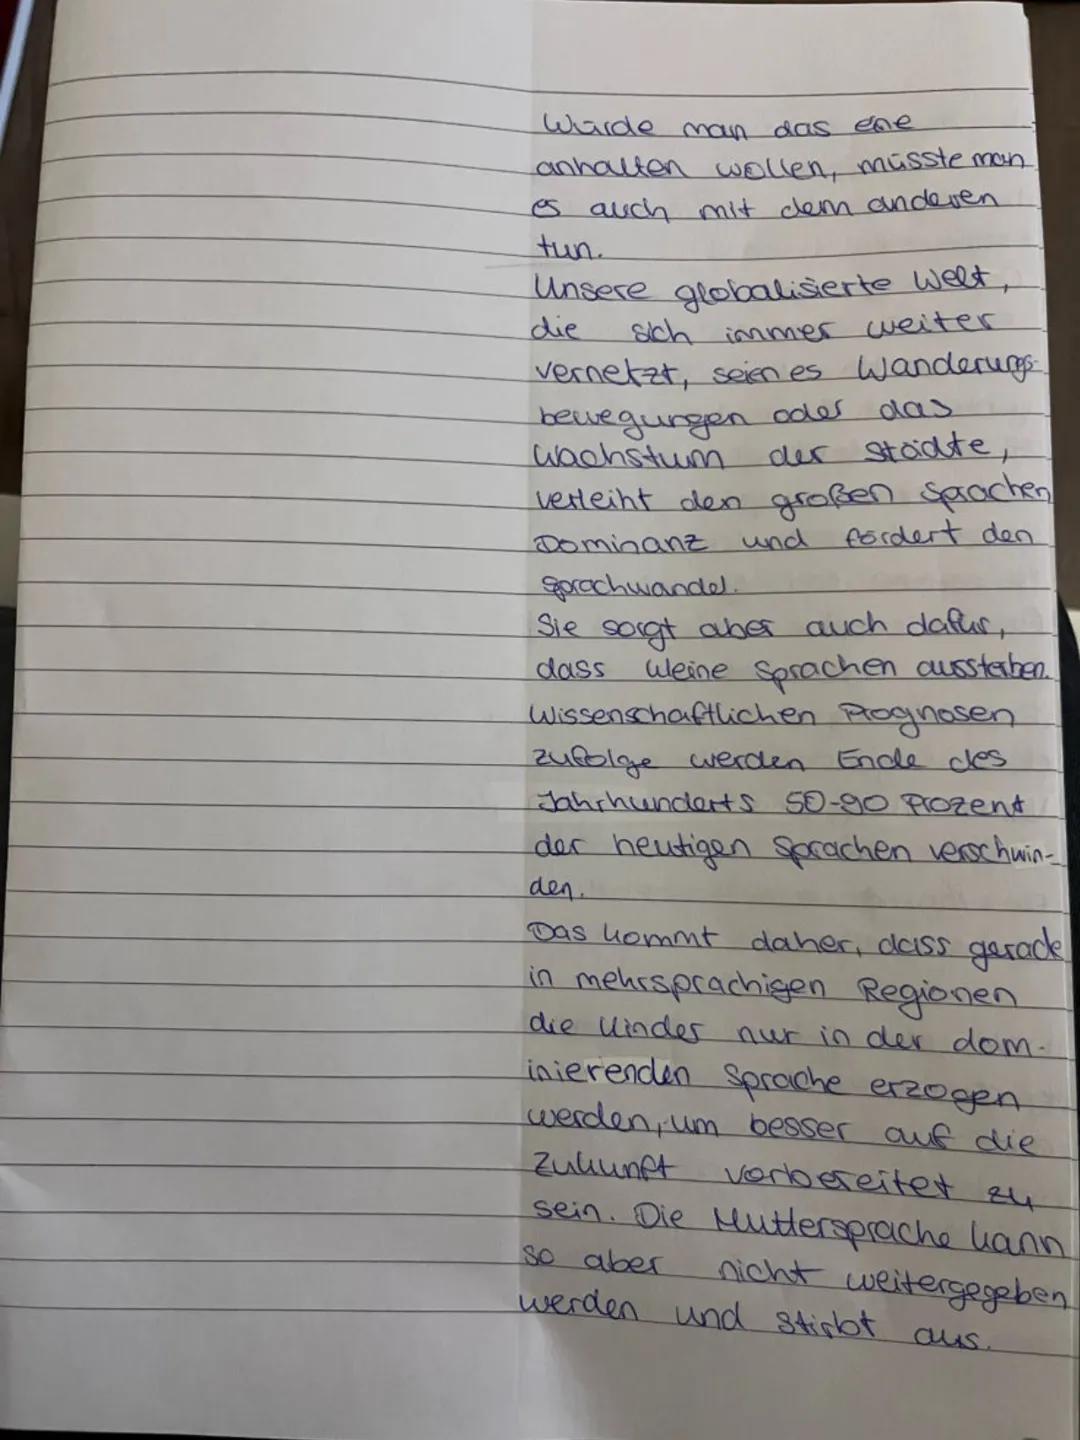 Würde man das eine
anhalten wollen, müsste man
es auch mit dem anderen
tun.
Unsere globalisierte Welt,
die sich immer weiter
vernetzt, seien es Wanderungs-
bewegungen oder das
Wachstum der Städte,
verleiht den großen Sprachen
Dominanz und fördert den
Sprachwandel.
Sie sorgt aber auch dafür,
dass kleine Sprachen aussterben.
Wissenschaftlichen Prognosen
zufolge werden Ende des
Jahrhunderts 50-90 Prozent
der heutigen Sprachen verschwin-
den.
Das kommt daher, dass gerade
in mehrsprachigen Regionen
die Kinder nur in der dom-
inierenden Sprache erzogen
werden, um besser auf die
Zukunft vorbereitet zu
sein. Die Muttersprache kann
so aber nicht weitergegeben
werden und stirbt aus.